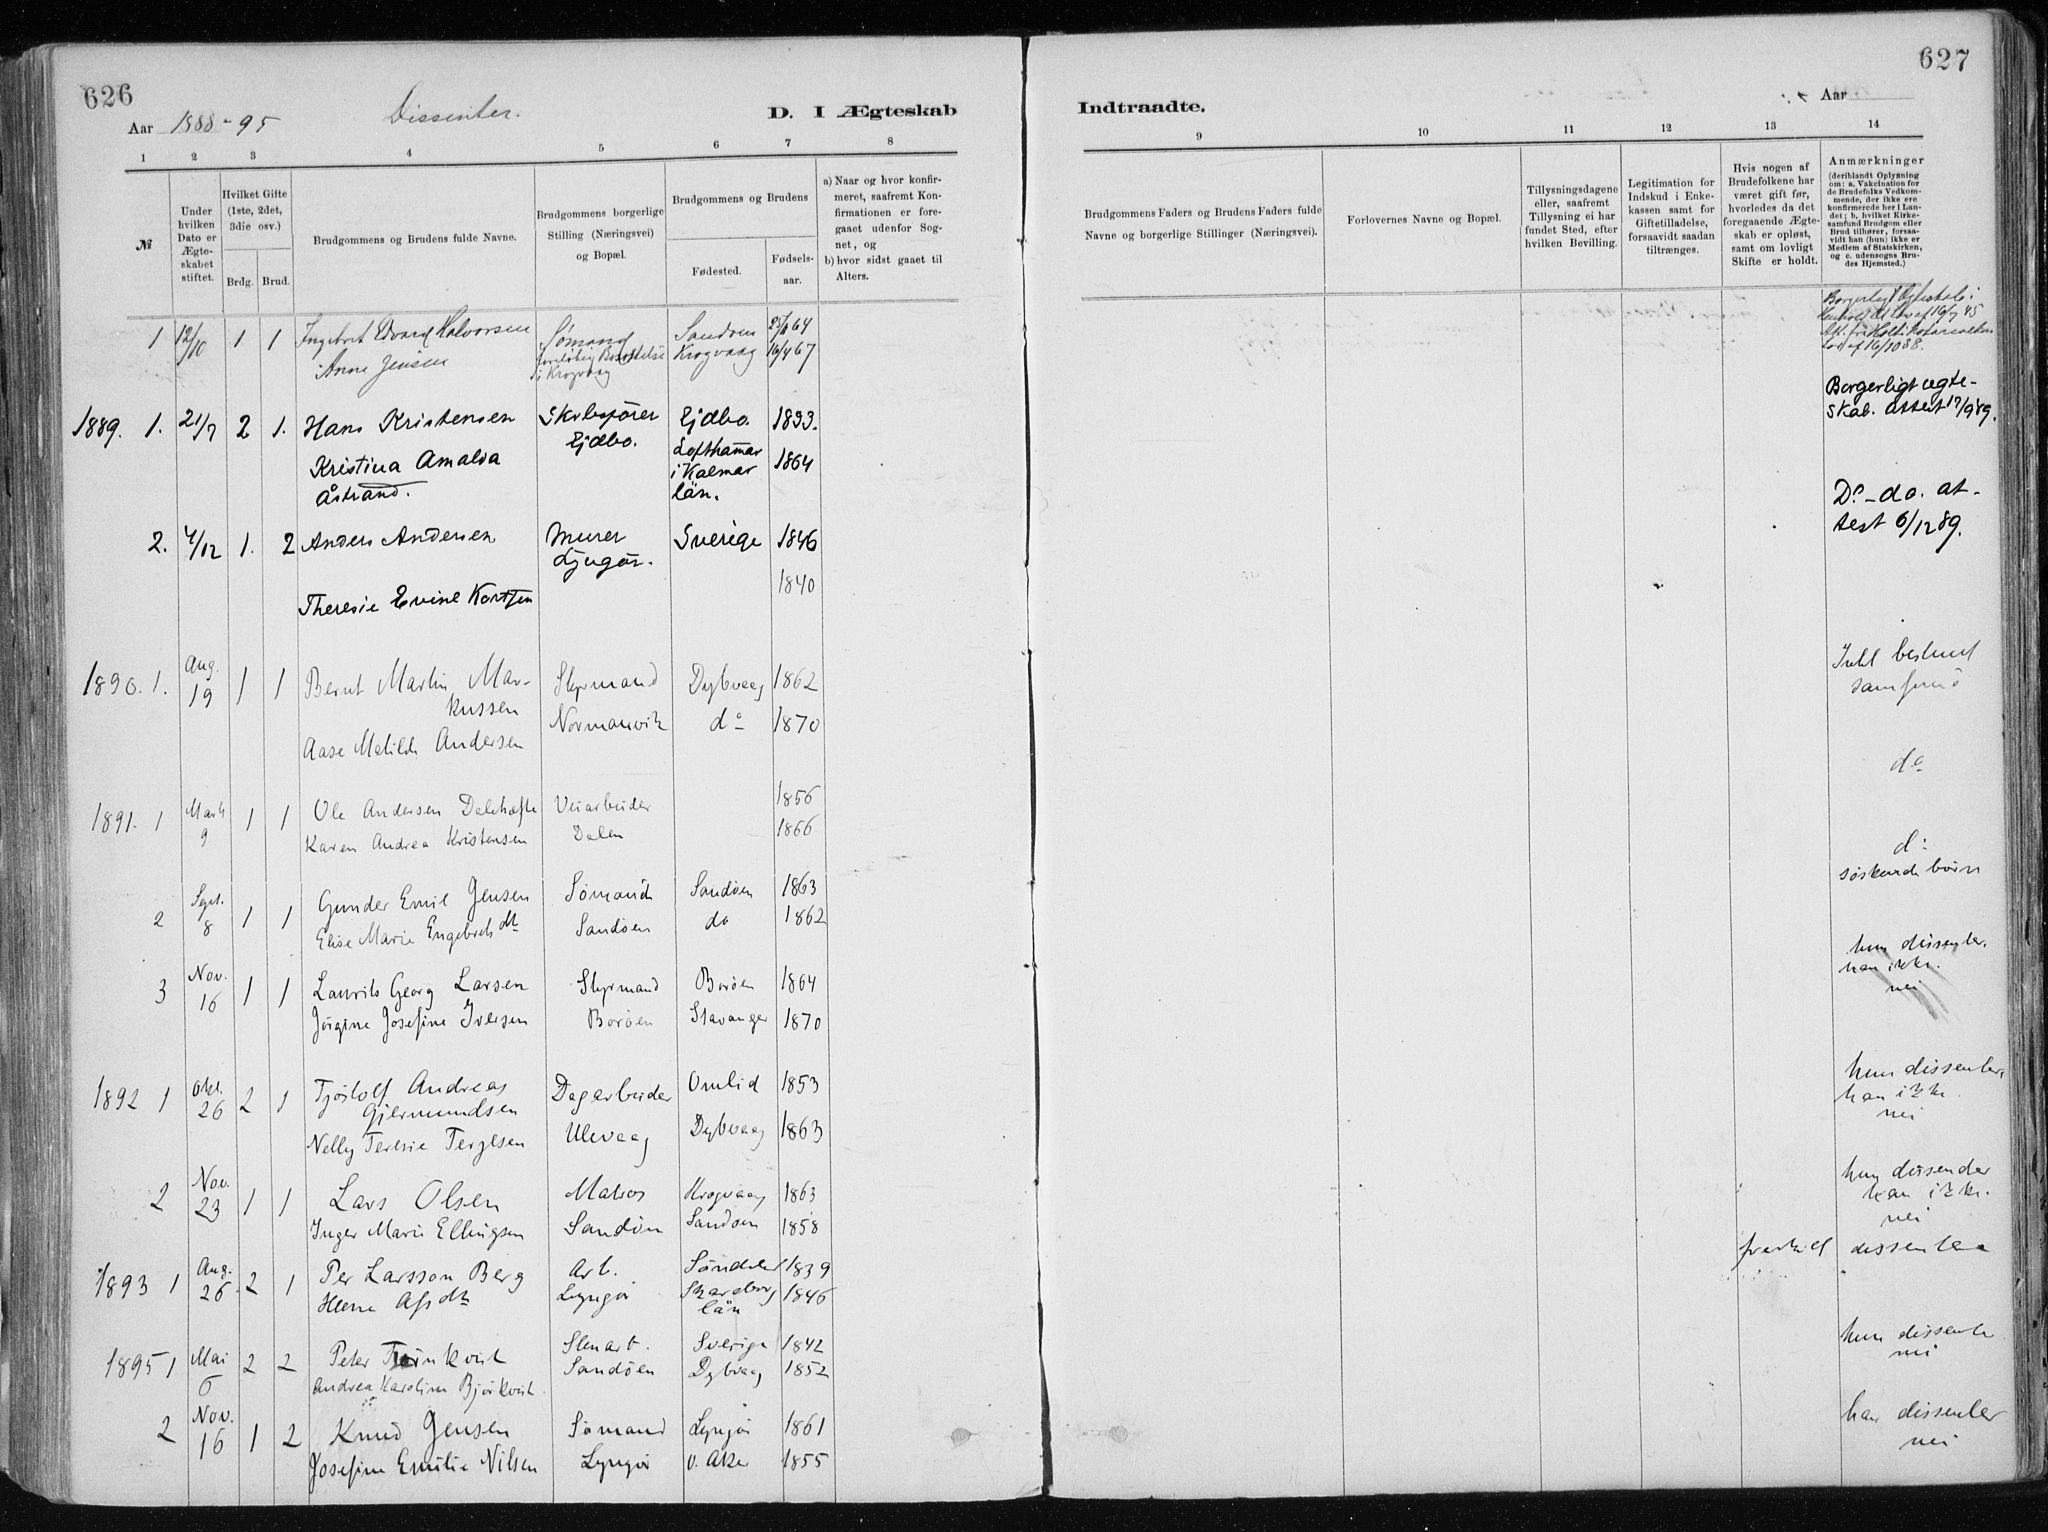 626
Aar 1888-95 Dissenter. D. I Ægteskab
1 2 3 4 5 6 7 8
№
Under hvilken Dato er Ægteskabet stiftet.
Hvilket Gifte (1ste, 2det, 3die osv.)
Brdg. Brud.
Brudgommens og Brudens fulde Navne.
Brudgommens borgerlige Stilling (Næringsvei) og Bopæl.
Brudgommens og Brudens
Fødested. Fødselsaar.
a) Naar og hvor konfirmeret, saafremt Konfirmationen er foregaaet udenfor Sognet, og
b) hvor sidst gaaet til Alters.
1 12/10 1 1 Ingebret Edvard Halvorsen Sømand Sandøen 64
Anne Jensen i Krogvaag Krogvaag 16/4 67
1889. 1. 21/7 2 1. Hans Kristensen Ejdbo. Ejdbo. 1833.
Kristina Amalda Åstrand. Lofthamar i Kalmar län. 1864
2. 4/12 1. 2 Anders Andersen Murer Lyngör. Sverige 1846
Theresie 1840
1890. 1. Aug. 19 1 1 Bernt Martin Markussen Styrmand Dybvaag 1862
Aase Matilde Andersen Normanvik do 1870
1891. 1 Marts 9 1 1 Ole Andersen Dalehæfte Veiarbeider 1856
Karen Andrea Kristensen Dalen 1866
2 Sept. 8 1 1 Gunder Emil Jensen Sømand Sandøen 1863
Elise Marie Engebretsdt Sandøen do 1862
3 Nov. 16 1 1 Laurits Georg Larsen Styrmand Borøen 1864
Jörgine Josefine Iversen Borøen Stavanger 1870
1892 1 Okt. 26 2 1 Tjöstolf Andreas Gjermundsen Dagarbeider Omlid 1853
Nelly Teresie Terjesen Ulevaag Dybvaag 1863
2 Nov. 23 1 1 Lars Olsen Matros Krogvaag 1863
Inger Marie Ellingsen Sandøen Sandøen 1858
1893 1 Aug. 26 2 1 Per Larsson Berg Arb. Söndeler 1839
Lyngör Skaraborg län 1846
1895 1 Mai 6 2 2 Peter Stenarb. Sverige 1842
Andrea Karoline Björkvist Sandöen Dybvaag 1852
2 Nov. 16 1 2 Knud Jensen Sømand Lyngör 1861
Josefine Emilie Nilsen Lyngör Ø. Aker 1855
627
Indtraadte. Aar
9 10 11 12 13 14
Brudgommens Faders og Brudens Faders fulde Navne og borgerlige Stillinger (Næringsvei).
Forlovernes Navne og Bopæl.
Tillysningsdagene eller, saafremt Tillysning ei har fundet Sted, efter hvilken Bevilling.
Legitimation for Indskud i Enkekassen samt for Giftetilladelse, forsaavidt saadan tiltrænges.
Hvis nogen af Brudefolkene har været gift før, hvorledes da det foregaaende Ægteskab er opløst, samt om lovligt Skifte er holdt.
Anmærkninger (deriblandt Oplysning om: a. Vakcination for de Brudefolks Vedkommende, der ikke ere konfirmerede her i Landet; b. hvilket Kirkesamfund Brudgom eller Brud tilhører, forsaavidt han (hun) ikke er Medlem af Statskirken, og c. udensogns Brudes Hjemsted.)
Borgerligt Ægteskab i
Henhold til Lov af 16/7 45
af 16/10 88.
Borgerligt ægteskab. Attest 17/9 89.
Do - do. attest 6/12 89.
Intet bestemt samfund
do
do
søskendebørn
hun dissenter,
han ikke.
nei
hun dissenter,
han ikke.
nei
hun dissender
han ikke.
nei
fraskilt dissentere
hun dissenter
nei
han dissenter
nei